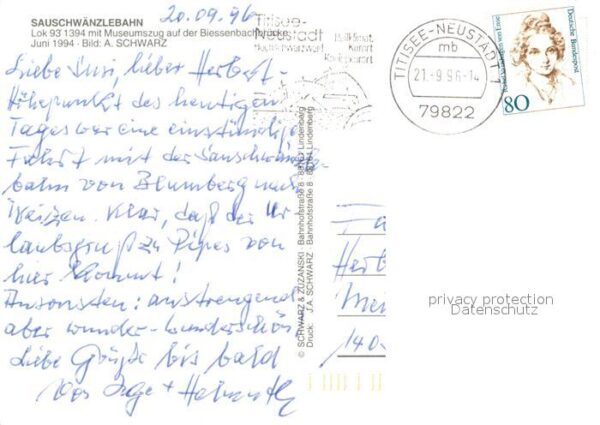 20.09.96
SAUSCHWÄNZLEBAHN
Lok 93 1394 mit Museumszug auf der Biesenbachbrücke
Juni 1994 · Bild: A. SCHWARZ
Liebe Susi, lieber Herbert -
Höhepunkt des heutigen
Tages war eine einstündige
Fahrt mit der Sauschwänzle-
bahn von Blumberg nach
Weizen. Klar, daß der Ur
laubsgruß zu Pipes von
hier kommt!
Ansonsten: anstrengend
aber wunder-wunderschön
Liebe Grüße bis bald
Von Inge + Helmuth
© SCHWARZ & ZUZANSKI · Bahnhofstraße 8 · Lindenberg
Druck: J.A. SCHWARZ · Bahnhofstraße 8 · Lindenberg
Titisee-
Neustadt
Hochschwarzwald
Heilklimat.
Kurort
Kneippkurort
TITISEE-NEUSTADT
mb
21.-9.96-14
79822
Deutsche Bundespost
80
Herb
140
privacy protection
Datenschutz